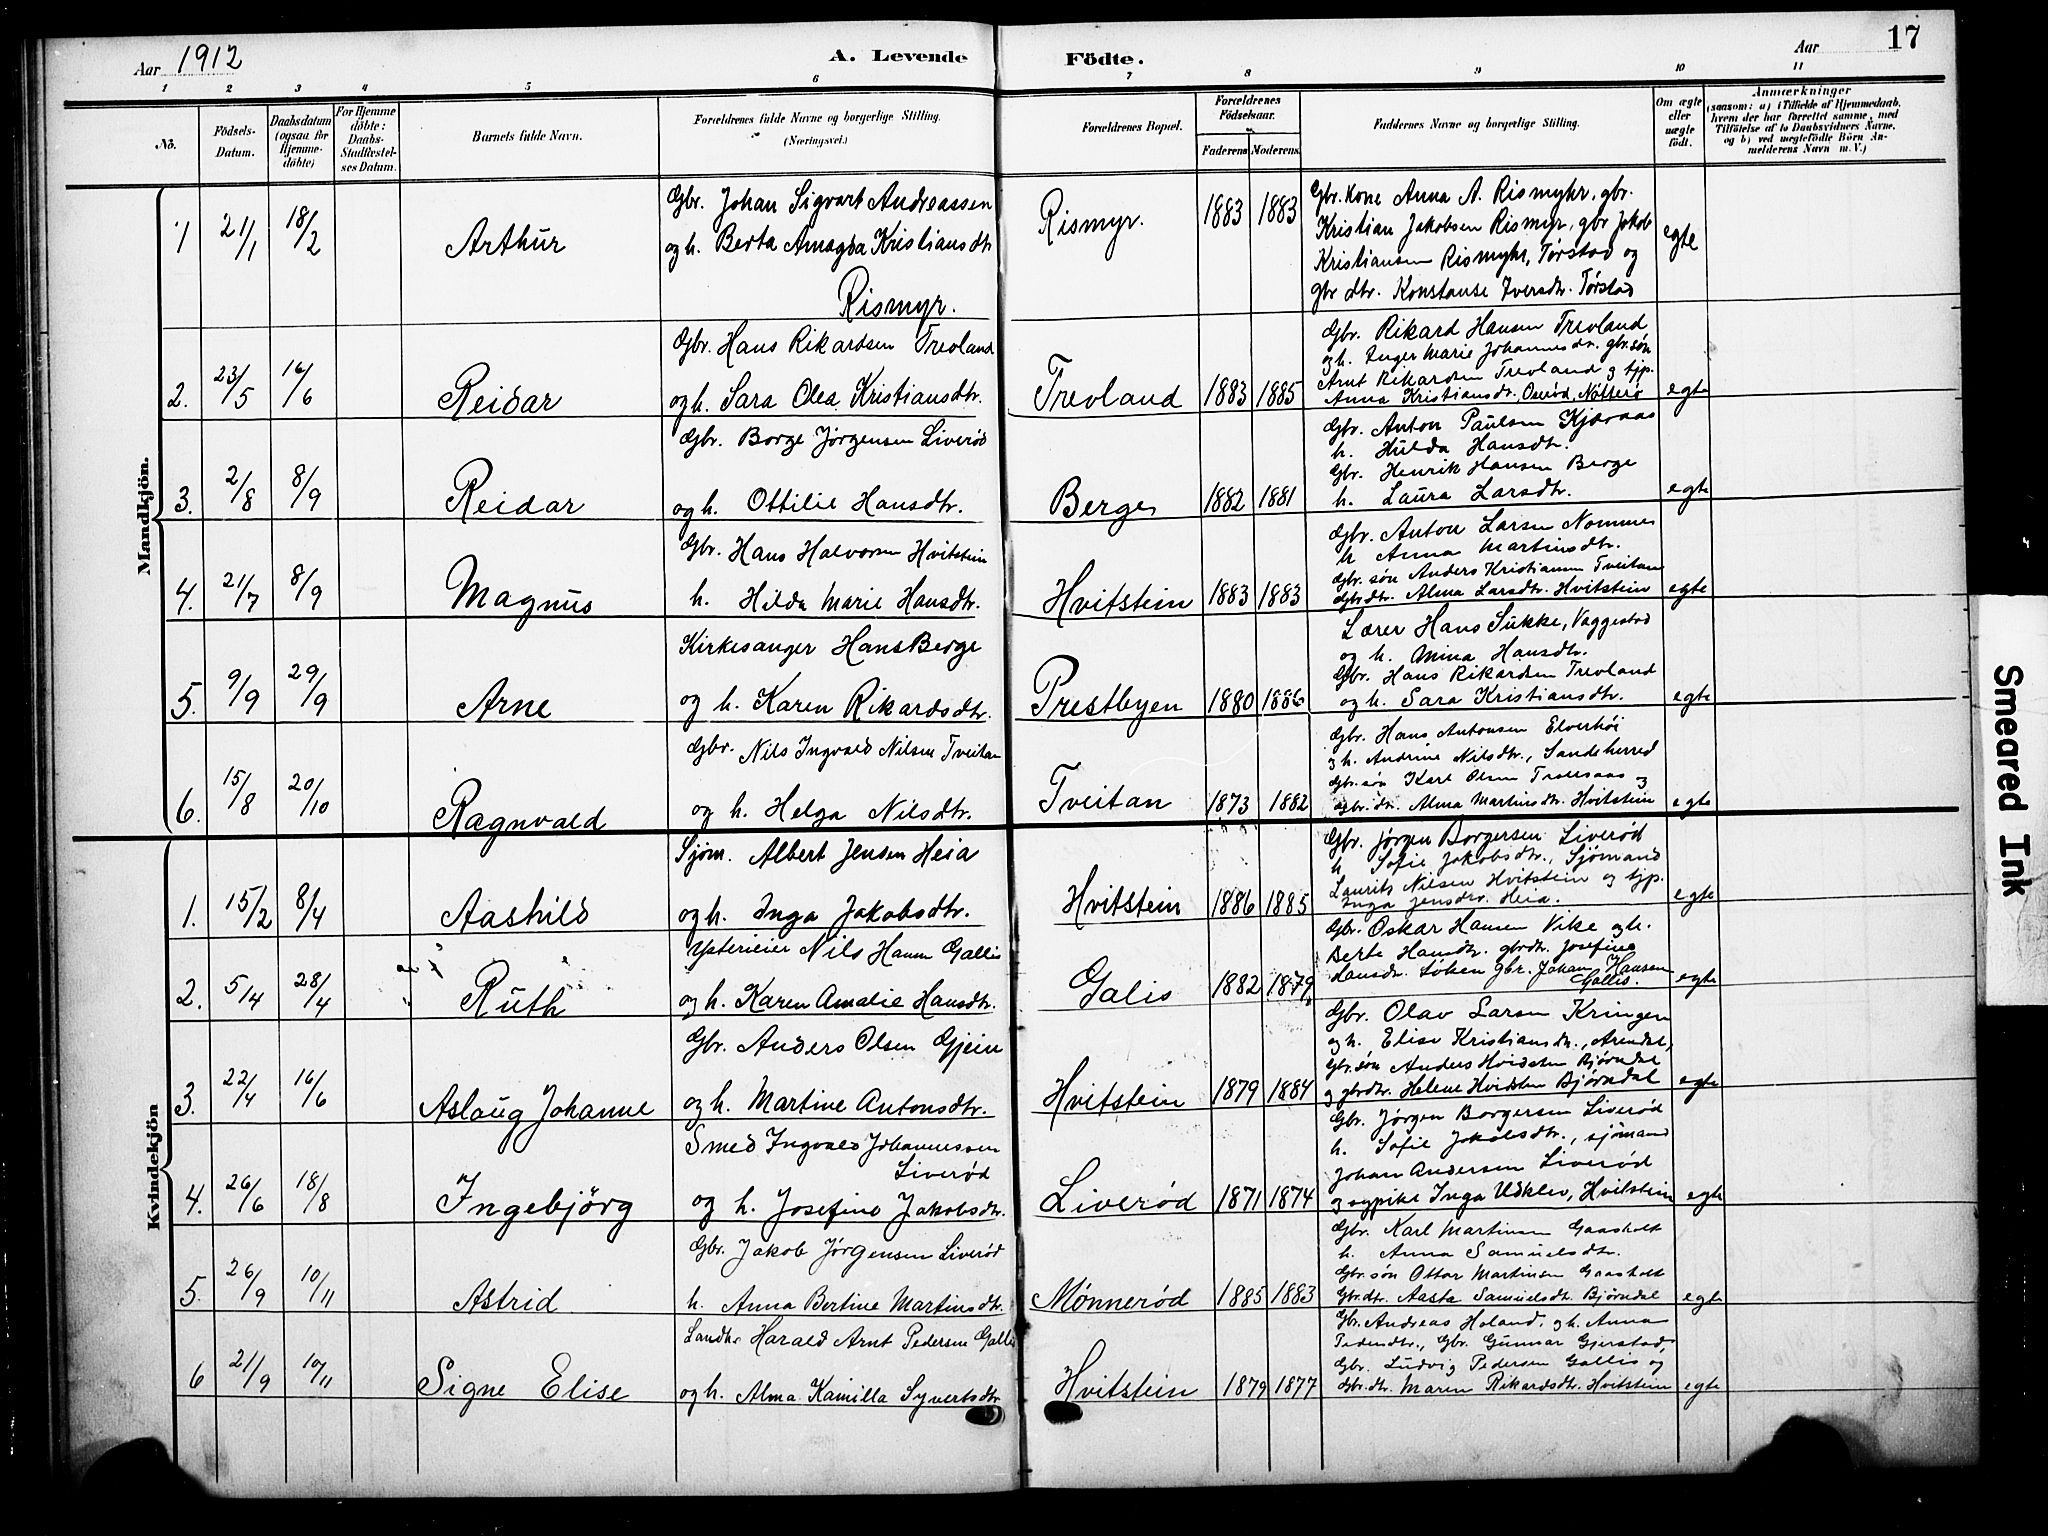 Aar 1912
A. Levende Födte.
Aar
17
1 2 3 4 5 6 7 8 9 10 11
No.
Födsels-Datum.
Daabsdatum (ogsaa for Hjemmedöbte)
For Hjemmedöbte: Daabs-Stadfæstelses Datum.
Barnets fulde Navn.
Forældrenes fulde Navne og borgerlige Stilling. (Næringsvei.)
Forældrenes Bopæl.
Forældrenes Födselsaar.
Faderens Moderens
Faddernes Navne og borgerlige Stilling.
Om ægte eller uægte födt.
Anmærkninger
(saasom: a) i Tilfælde af Hjemmedaab, hvem der har forrettet samme, med Tilföielse af to Daabsvidners Navne, og b) ved uægtefödte Börn Anmelderens Navn m. V.)
Mandkjön.
1 21/1 18/2 Arthur
Gbr. Johan Sigvart Andreassen
og h. Berta Amagda Kristiansdtr.
Rismyr.
Rismyr. 1883 1883
Gbr. Kone Anna A. Rismyhr, gbr.
Kristian Jakobsen Rismyr, gbr Jakob
Kristiansen Rismyhr, Tørstad og
gbr dtr. Konstanse Iversdtr. Tørstad
egte
2. 23/5 16/6 Reidar
Gbr. Hans Rikardsen Trevland
og h. Sara Olea Kristiansdtr.
Trevland 1883 1885
Gbr. Rikard Hansen Trevland
og h. Inger Marie Johannesdtr. gbr. søn
Arnt Rikardsen Trevland og tjp.
Anna Kristiansdtr. Nøtterø
egte
3. 2/8 8/9 Reidar
Gbr. Borge Jørgensen Liverød
og h. Ottilie Hansdtr.
Berge 1882 1881
Gbr. Anton Paulsen Kjæraas
h. Hulda Hansdtr.
Gbr. Henrik Hansen Berge
h. Laura Larsdtr.
egte
4. 21/7 8/9 Magnus
Gbr. Hans Halvorsen Hvitstein
h. Hilda Marie Hansdtr.
Hvitstein 1883 1883
Gbr. Anton Larsen Nommes
h Anna Martinsdtr.
Gbr. søn Anders Kristiansen Tveitan
Gbrdtr. Alma Larsdtr. Hvitstein
egte
5. 9/9 29/9 Arne
Kirkesanger Hans Berge
og h. Karen Rikardsdtr.
Prestbyen 1880 1886
Lærer Hans Sukke, Vaggestad
og h. Mina Hansdtr.
Gbr. Hans Rikardsen Trevland
og h. Sara Kristiansdtr.
egte
6. 15/8 20/10 Ragnvald
Gbr. Nils Ingvald Nilsen Tveitan
og h. Helga Nilsdtr.
Tveitan 1873 1882
Gbr. Hans Antonsen Elverhøi
og h. Andrine Nilsdtr., Sandeherred
Gbr. søn Karl Olsen Trollsaas og
gbr. dtr. Alma Martinsdtr. Hvitstein
egte
Kvindekjön
1. 15/2 8/4 Aashild
Sjøm. Albert Jensen Heia
og h. Inga Jakobsdtr.
Hvitstein 1886 1885
Gbr. Jørgen Borgersen Liverød
h Sofie Jakobsdtr., Sjømand
Laurits Nilsen Hvitstein og tjp.
Inga Jensdtr. Heia.
egte
2. 5/4 28/4 Ruth
Ysterieier Nils Hansen Gallis
og h. Karen Amalie Hansdtr.
Galis 1882 1879
Gbr. Oskar Hansen Vike og h.
Berte Hansdtr. gbrdtr. Josefine
Hansdtr. Løken gbr. Johan Hansen
Gallis.
egte
3. 22/4 16/6 Aslaug Johanne
Gbr. Anders Olsen Gjein
og h. Martine Antonsdtr.
Hvitstein 1879 1884
Gbr. Olav Larsen Kringen
og h. Elise Kristiansdtr., Arendal,
Gbr. søn Anders Hvidsten Bjørndal
og gbrdtr. Helene Hvidsten Bjørndal
egte
4. 26/6 18/8 Ingebjörg
Smed Ingvald Johannessen
Liverød
og h. Josefine Jakobsdtr.
Liverød 1871 1874
Gbr. Jørgen Borgersen Liverød
h. Sofie Jakobsdtr., sjömand
Johan Andersen Liverød
og sypike Inga Udklev, Hvitstein
egte
5. 26/9 10/11 Astrid
Gbr. Jakob Jørgensen Liverød
h. Anna Bertine Martinsdtr.
Mønnerød 1885 1883
Gbr. Karl Martinsen Gaasholt
h. Anna Samuelsdtr.
Gbr. søn Ottar Martinsen Gaasholt
Gbr. dtr. Aasta Samuelsdtr. Bjørndal
egte
6 21/9 10/11 Signe Elise
Landh. Harald Arnt Pedersen Gallis
og h. Alma Kamilla Syvertsdtr.
Hvitstein 1879 1877
Gbr. Andreas Holand, og h. Anna
Pedersdtr., Gbr. Gunnar Gjerstad,
Gbr. Ludvig Pedersen Gallis og
Gbr. dtr. Maren Rikardsdtr. Hvitstein
egte
Smeared Ink